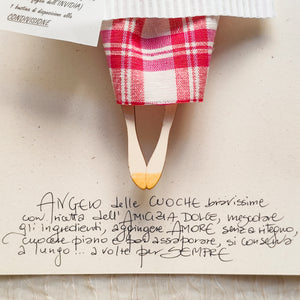 (foglia dell'INVIDIA)
1 bustina di disposizione alla
CONDIVISIONE
ANGELO delle CUOCHE bravissime
con ricetta dell'AMICIZIA DOLCE, mescolare
gli ingredienti, aggiungere AMORE senza ritegno,
cuocere piano e poi assaporare, si conserva
a lungo!.. a volte per SEMPRE